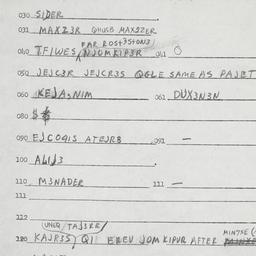 030 SIDER
031 MAXZ3R QHUSB MAXZZER
FAR ROST3STON3
040 TFIWES NJOMKIP3R 041 O
050 JEJC3R JEJCR3S QGLE SAME AS PAJET
060 KEJA,NIM 061 DUX3N3N
080 $
090 EJCOQIS ATEJRB 091 —
100 ALIJ3
110 M3NADER 111 —
111
122
UNEQ TAJ3RE MINTSE
120 KAJR3S QI EREV JOM KIPUR AFTER